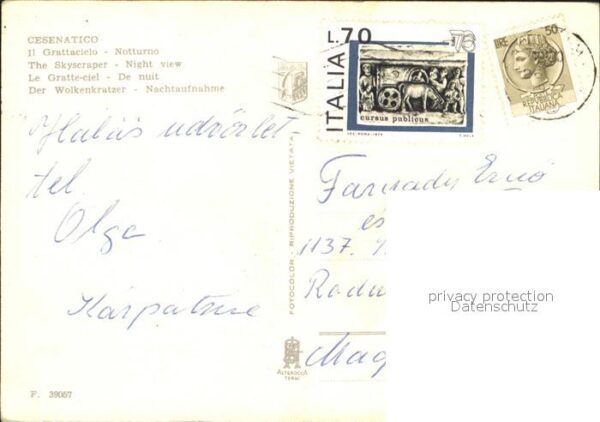 CESENATICO
Il Grattacielo - Notturno
The Skyscraper - Night view
Le Gratte-ciel - De nuit
Der Wolkenkratzer - Nachtaufnahme
Hálás üdvözlet-
tel
Olga
Kárpátiné
F. 39057
FOTOCOLOR - RIPRODUZIONE VIETATA
ALTEROCCA
TERNI
L.70
ITALIA
76
cursus publicus
LIRE 50
REPUBBLICA
ITALIANA
Farnady Ernő
és
1137.
Radn
Mag
privacy protection
Datenschutz